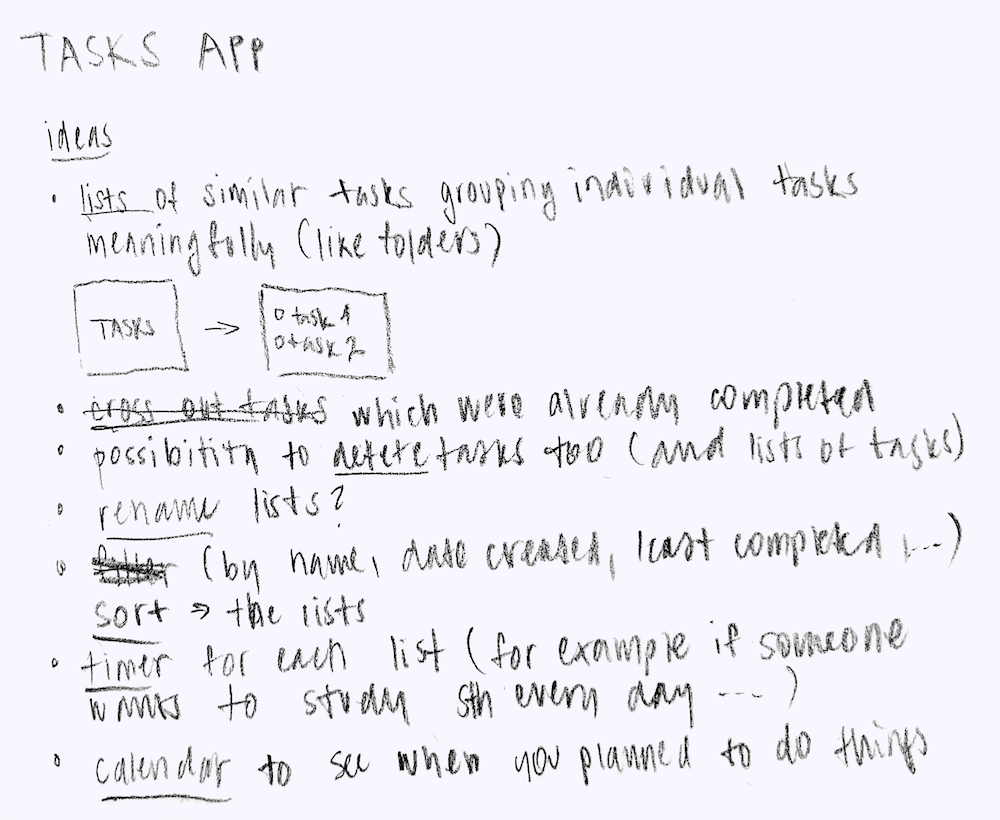 TASKS APP
ideas
• lists of similar tasks grouping individual tasks
meaningfully (like folders)
TASKS → o task 1
o task 2
• cross out tasks which were already completed
• possibility to delete tasks too (and lists of tasks)
• rename lists?
• filter (by name, date created, least completed, ...)
sort → the lists
• timer for each list (for example if someone
wants to study sth every day ...)
• calendar to see when you planned to do things